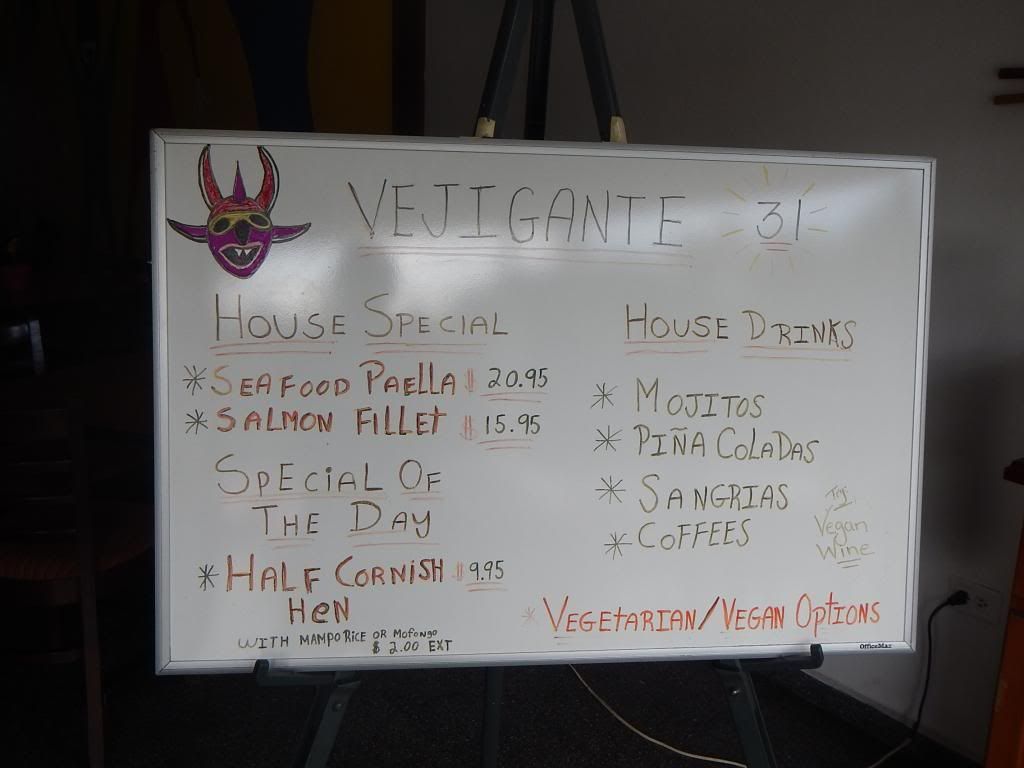 VEJIGANTE 31
HOUSE SPECIAL
* SEAFOOD PAELLA $ 20.95
* SALMON FILLET $ 15.95
SPECIAL OF
THE DAY
* HALF CORNISH $ 9.95
HEN
WITH MAMPO RICE OR MOFONGO
$ 2.00 EXT
HOUSE DRINKS
* MOJITOS
* PIÑA COLADAS
* SANGRIAS
* COFFEES
Try
Vegan
Wine
* VEGETARIAN/VEGAN OPTIONS
OfficeMax